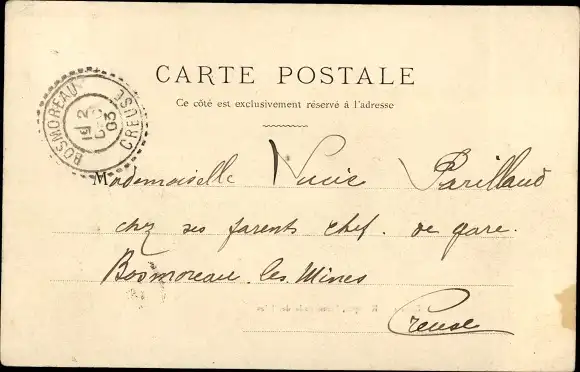 CARTE POSTALE
Ce côté est exclusivement réservé à l'adresse
BOSMOREAU CREUSE
2
03
Mademoiselle Parillaud
chez ses parents chef. de gare.
Bosmoreau. les. Mines
Creuse